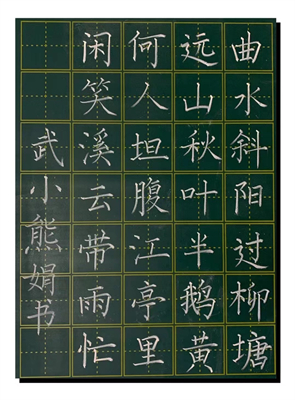 曲水斜阳过柳塘
远山秋叶半鹅黄
何人坦腹江亭里
闲笑溪云带雨忙
武小熊娟书